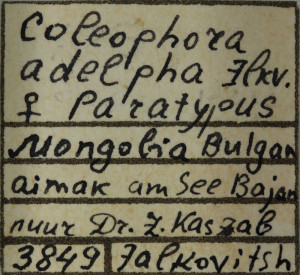 Coleophora
adelpha Flkv.
♀ Paratypus
Mongolia Bulgan
aimak am See Bajan
nuur Dr. Z. Kaszab
3849 Falkovitsh